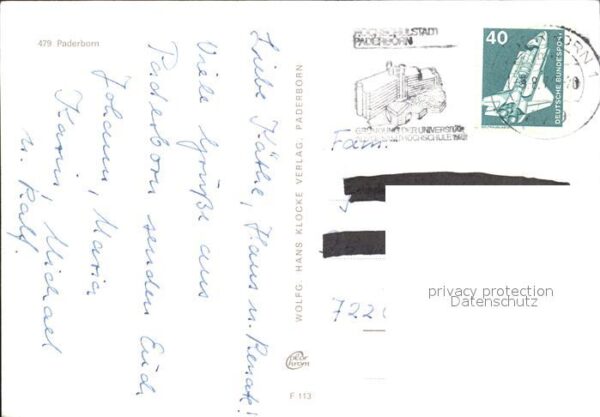 479 Paderborn
Liebe Käthe, Hans u. Renate!
Viele Grüße aus
Paderborn senden Euch
Johann, Maria
Karin, Michael
u. Ralf.
WOLFG. HANS KLOCKE VERLAG, PADERBORN
F 113
HOCHSCHULSTADT
PADERBORN
GRÜNDUNG DER UNIVERSITÄT
40
DEUTSCHE BUNDESPOST
Fam.
722
privacy protection
Datenschutz